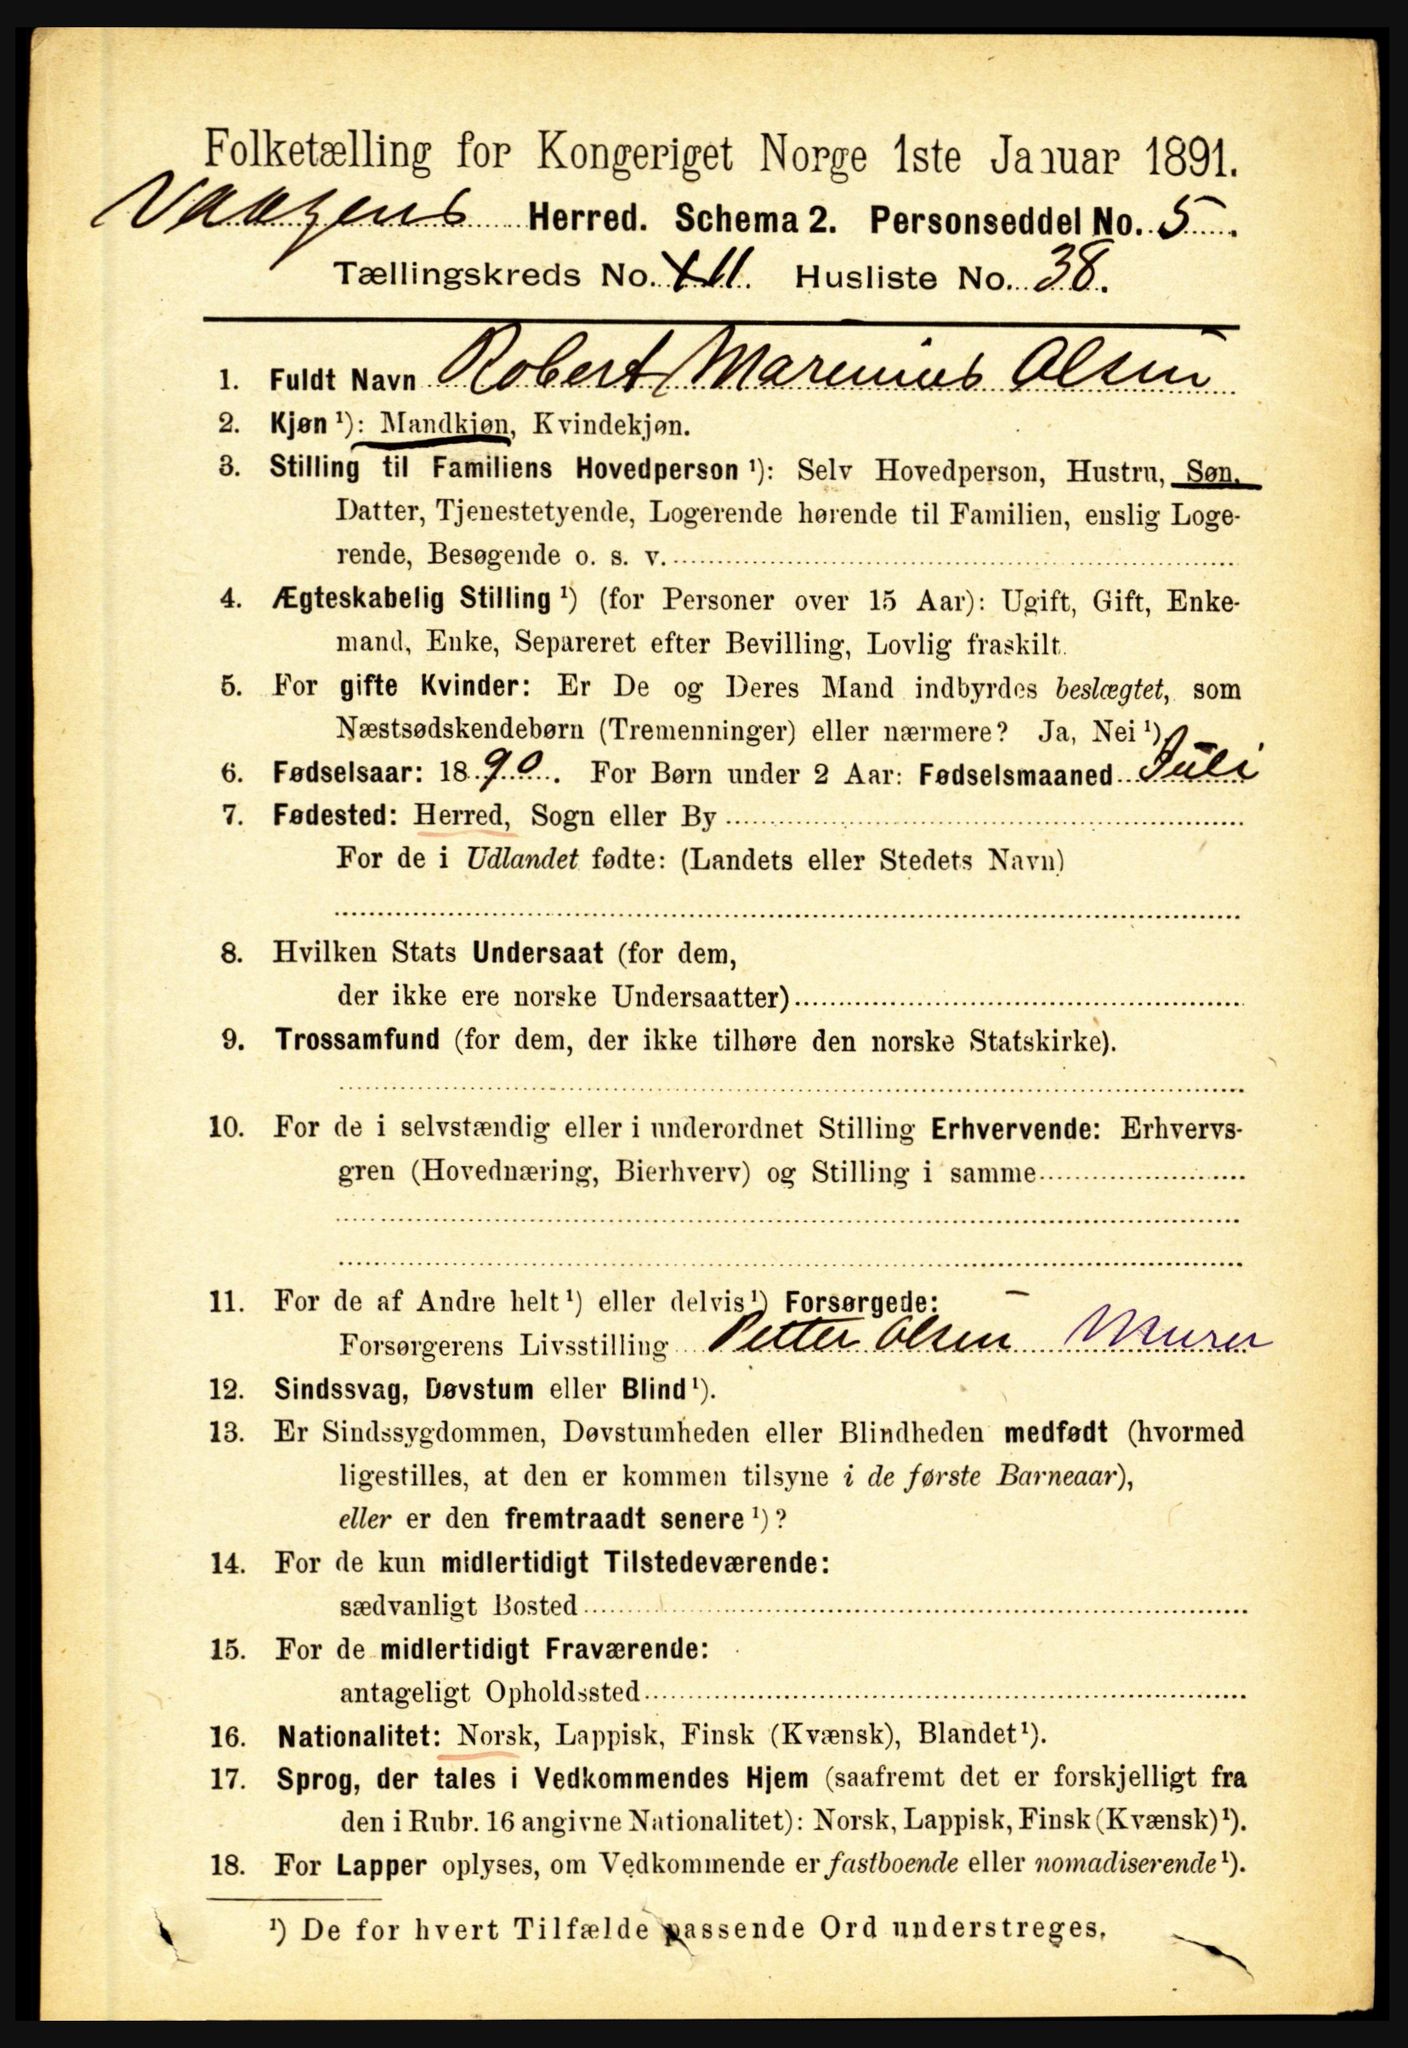 Folketælling for Kongeriget Norge 1ste Januar 1891.
Vaagens Herred. Schema 2. Personseddel No. 5.
Tællingskreds No. 11. Husliste No. 38.
1. Fuldt Navn Robert Marinius Olsen
2. Kjøn ¹): Mandkjøn, Kvindekjøn.
3. Stilling til Familiens Hovedperson ¹): Selv Hovedperson, Hustru, Søn,
Datter, Tjenestetyende, Logerende hørende til Familien, enslig Loge-
rende, Besøgende o. s. v.
4. Ægteskabelig Stilling ¹) (for Personer over 15 Aar): Ugift, Gift, Enke-
mand, Enke, Separeret efter Bevilling, Lovlig fraskilt.
5. For gifte Kvinder: Er De og Deres Mand indbyrdes beslægtet, som
Næstsødskendebørn (Tremenninger) eller nærmere? Ja, Nei ¹)
6. Fødselsaar: 1890. For Børn under 2 Aar: Fødselsmaaned Juli
7. Fødested: Herred, Sogn eller By
For de i Udlandet fødte: (Landets eller Stedets Navn)
8. Hvilken Stats Undersaat (for dem,
der ikke ere norske Undersaatter)
9. Trossamfund (for dem, der ikke tilhøre den norske Statskirke).
10. For de i selvstændig eller i underordnet Stilling Erhvervende: Erhvervs-
gren (Hovednæring, Bierhverv) og Stilling i samme
11. For de af Andre helt ¹) eller delvis ¹) Forsørgede:
Forsørgerens Livsstilling Petter Olsen Murer
12. Sindssvag, Døvstum eller Blind ¹).
13. Er Sindssygdommen, Døvstumheden eller Blindheden medfødt (hvormed
ligestilles, at den er kommen tilsyne i de første Barneaar),
eller er den fremtraadt senere ¹)?
14. For de kun midlertidigt Tilstedeværende:
sædvanligt Bosted
15. For de midlertidigt Fraværende:
antageligt Opholdssted
16. Nationalitet: Norsk, Lappisk, Finsk (Kvænsk), Blandet ¹).
17. Sprog, der tales i Vedkommendes Hjem (saafremt det er forskjelligt fra
den i Rubr. 16 angivne Nationalitet): Norsk, Lappisk, Finsk (Kvænsk) ¹).
18. For Lapper oplyses, om Vedkommende er fastboende eller nomadiserende ¹).
¹) De for hvert Tilfælde passende Ord understreges.